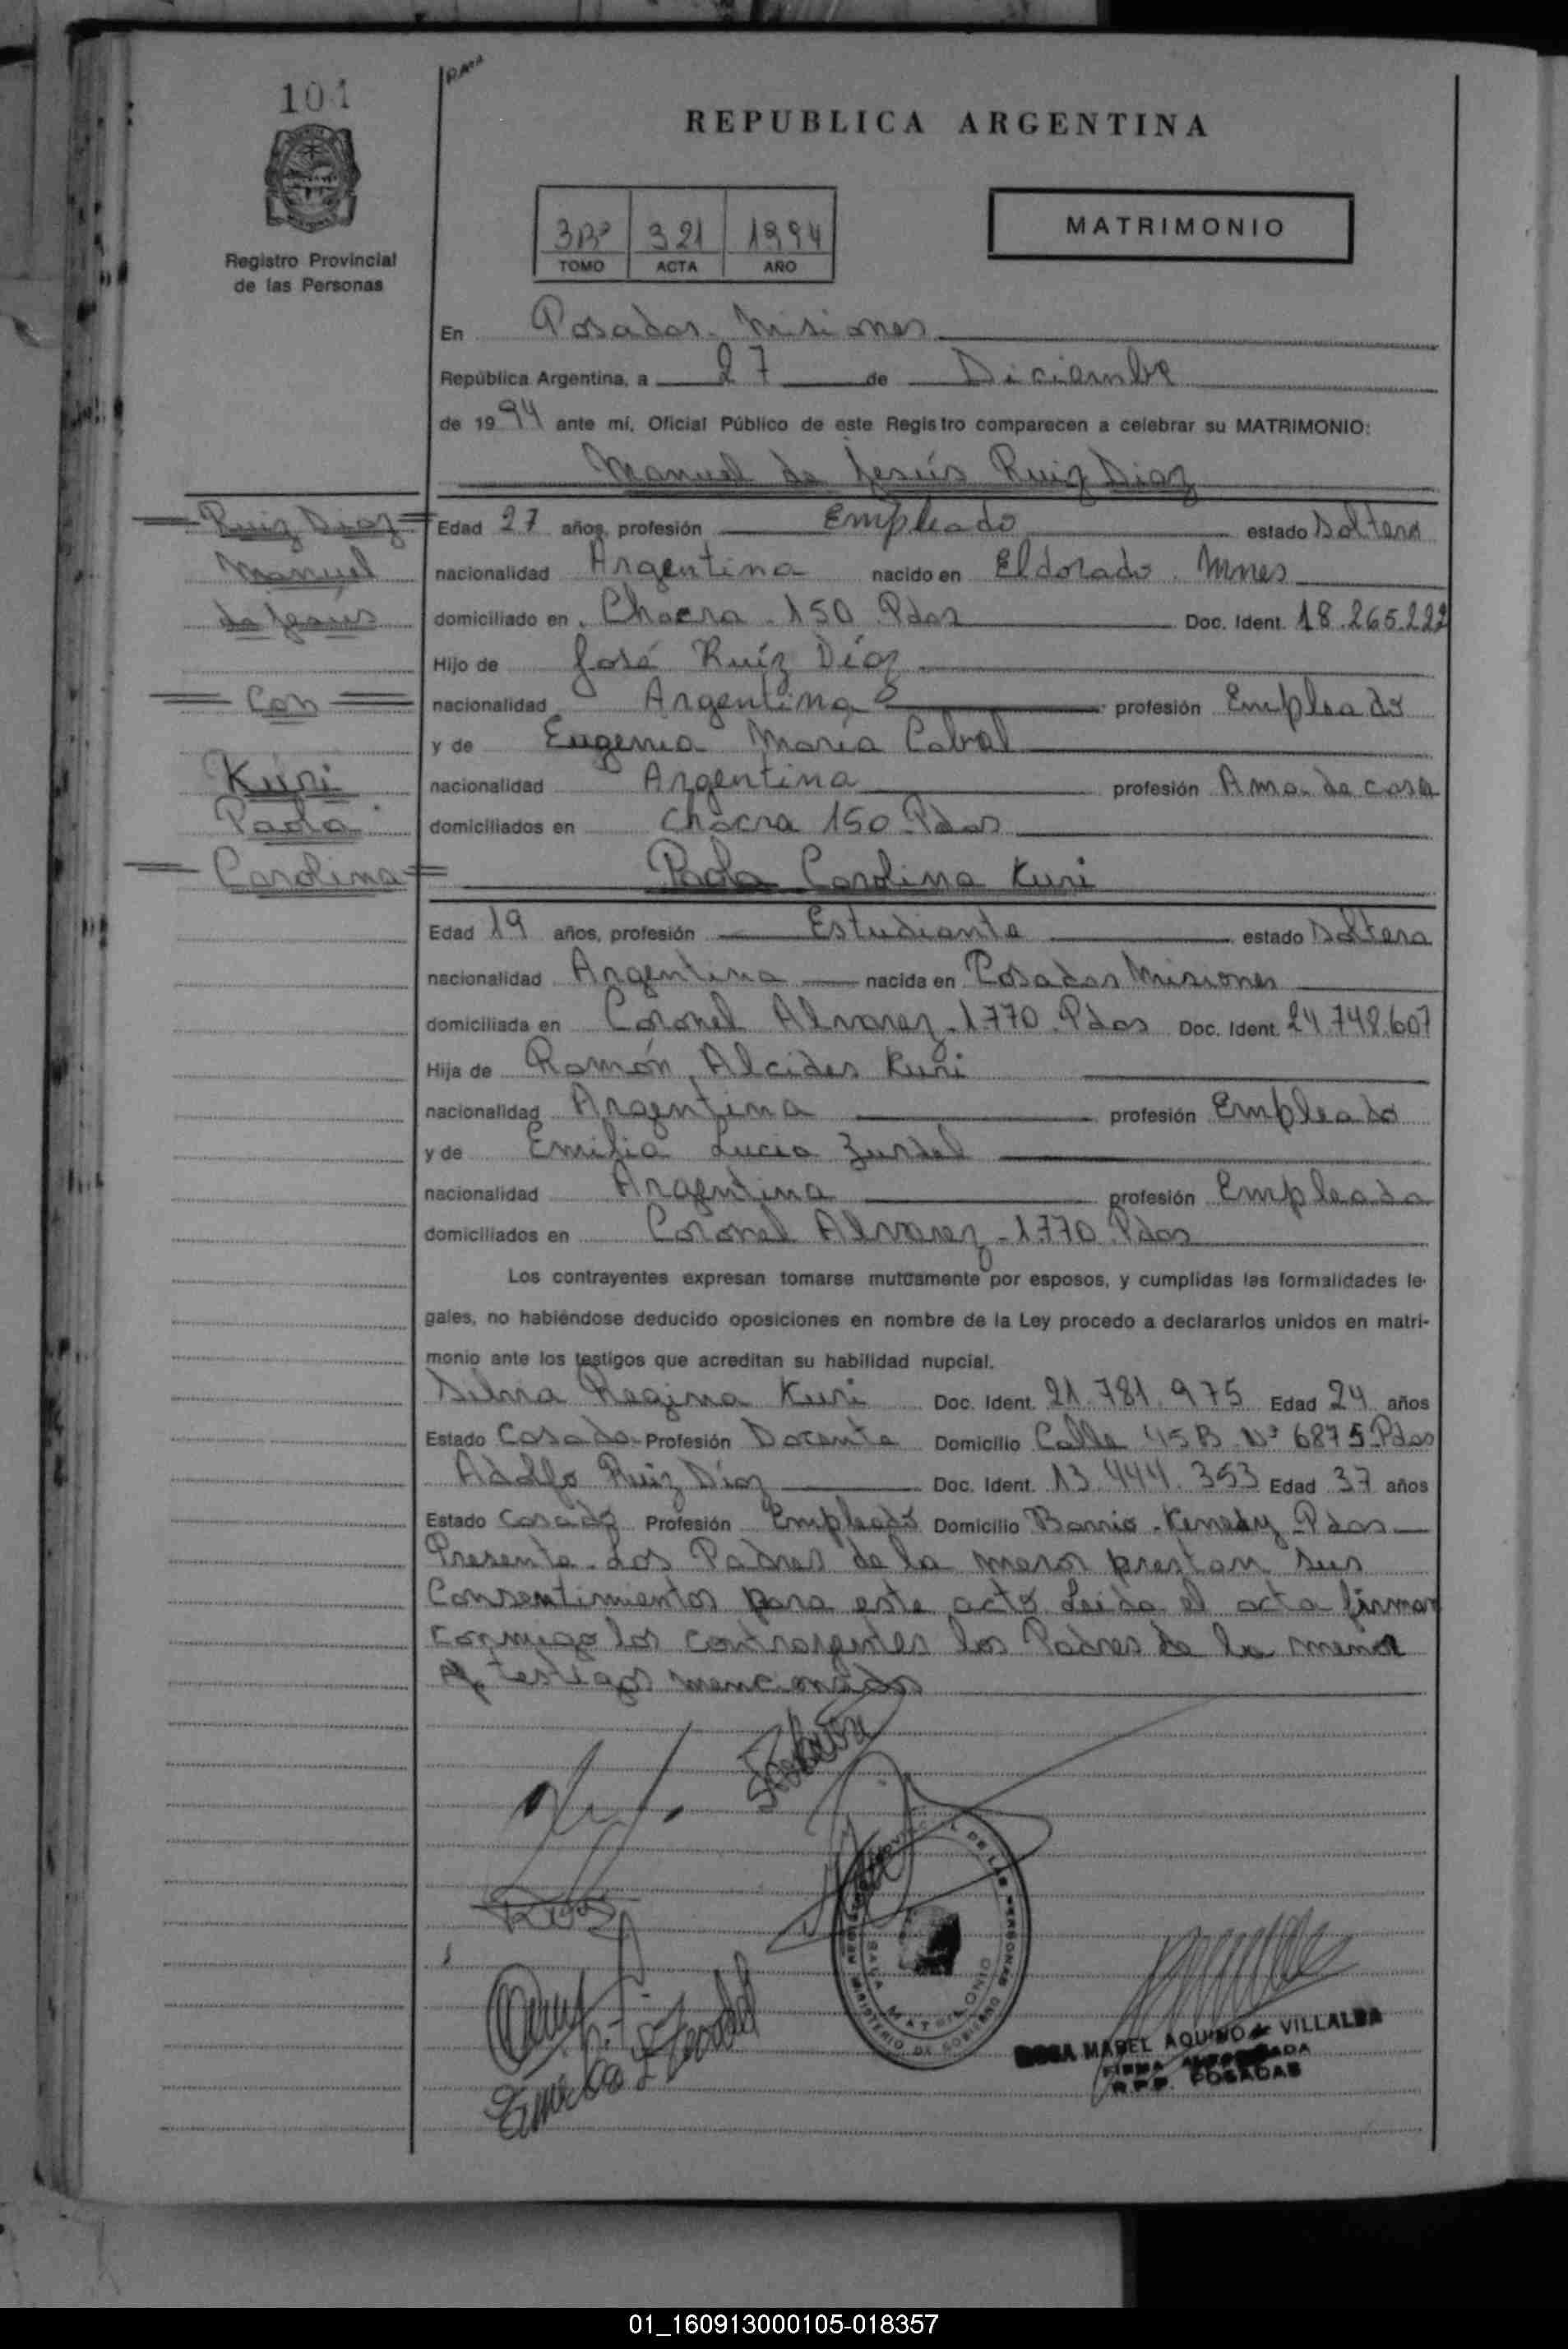 101
REPUBLICA ARGENTINA
Registro Provincial
de las Personas
321 1994
TOMO ACTA AÑO
MATRIMONIO
En Posadas - Misiones
República Argentina, a 27 de Diciembre
de 1994 ante mí, Oficial Público de este Registro comparecen a celebrar su MATRIMONIO:
Manuel de Jesús Ruiz Diaz
Ruiz Diaz
Manuel
de Jesús
Con
Kuri
Paola
Carolina
Edad 27 años, profesión Empleado estado Soltero
nacionalidad Argentina nacido en Eldorado. Mnes
domiciliado en Chacra - 150 - Pdas Doc. Ident. 18.265.222
Hijo de José Ruíz Díaz
nacionalidad Argentina profesión Empleado
y de Eugenia María Cabral
nacionalidad Argentina profesión Ama de casa
domiciliados en Chacra 150 - Pdas
Paola Carolina Kuri
Edad 19 años, profesión Estudiante estado Soltera
nacionalidad Argentina nacida en Posadas Misiones
domiciliada en Coronel Alvarez - 1770 - Pdas Doc. Ident. 24.748.607
Hija de Ramón Alcides Kuri
nacionalidad Argentina profesión Empleado
y de Emilia Lucia Zurdel
nacionalidad Argentina profesión Empleada
domiciliados en Coronel Alvarez - 1770 - Pdas
Los contrayentes expresan tomarse mutuamente por esposos, y cumplidas las formalidades le-
gales, no habiéndose deducido oposiciones en nombre de la Ley procedo a declararlos unidos en matri-
monio ante los testigos que acreditan su habilidad nupcial.
Silvia Regina Kuri Doc. Ident. 21.781.975 Edad 24 años
Estado Casada - Profesión Docente Domicilio Calle 45 B - Nº 6875 - Pdas
Adolfo Ruiz Díaz Doc. Ident. 13.444.353 Edad 37 años
Estado Casado Profesión Empleado Domicilio Barrio - Kenedy - Pdas
Presente - Los Padres de la menor prestan sus
Consentimientos para este acto Leida el acta firman
conmigo los contrayentes los Padres de la menor
y testigos mencionados
SALA MATRIMONIO
MINISTERIO DE GOBIERNO
ROSA MABEL AQUINO de VILLALBA
FIRMA AUTORIZADA
R.P.P. POSADAS
01_160913000105-018357